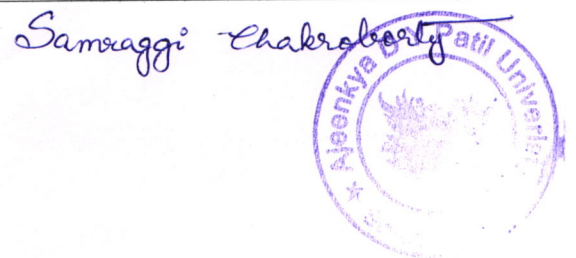 Samraggi Chakroborty
★ Ajeenkya D Y Patil Universit